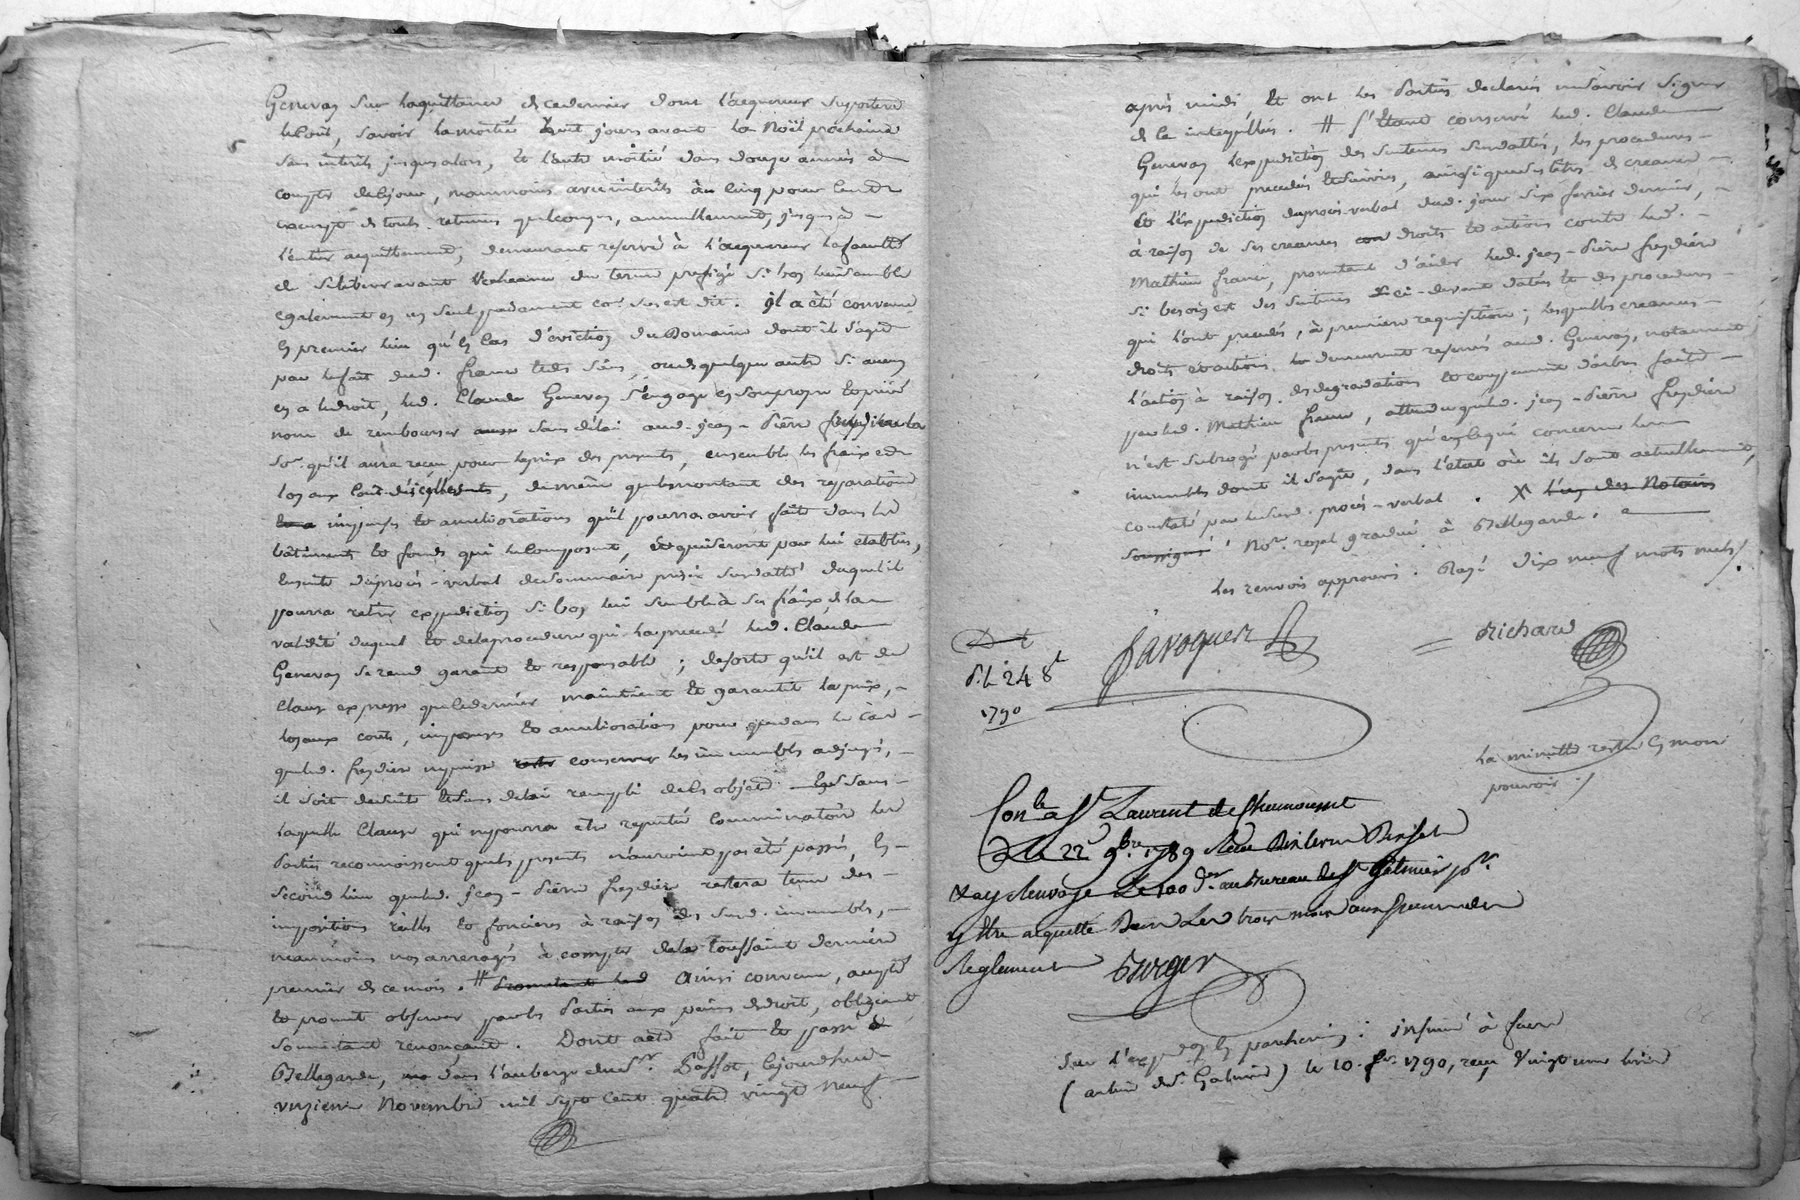 Genevay sur laquittance de ce dernier dont l'acquereur suportera
le coût, savoir la moitié huit jours avant la Noël prochaine
sans interêts jusques alors, et l'autre moitié dans douze années à
compter de ce jour, neanmoins avec interêts au cinq pour cent
exempt de toute retenue quelconque, annuellement, jusques à
l'entier acquittement, demeurant reservé à l'acquereur la faculté
de se liberer avant l'echeance du terme prefigé si bon lui semble
également en un seul payement co. sus est dit. il a été convenu
en premier lieu qu'en cas d'eviction du Domaine dont il s'agit
par le fait dud. france et des siens, ou de quelque autre si aucun
en a le droit, led. Claude Genevay s'engage en son propre et privé
nom de rembourser sans délai aud. jean-Pierre freydiere la
so.e qu'il aura reçu pour le prix des presents, ensemble les fraix et
loyaux couts, de même que le montant des reparations
impenses et ameliorations qu'il pourra avoir fait dans les
bâtiments et fonds qui le composent, et qui seront par lui etablies,
ensuite du procès-verbal de sommaire prisée surdatté duquel il
pourra retirer expedition si bon lui semble à ses fraix, de la
validité duquel et de la procedure qui l'a precedé led. Claude
Genevay se rend garant et responsable ; de sorte qu'il est de
clause expresse que ce dernier maintient et garantit le prix,
loyaux couts, impenses et ameliorations pour que dans le cas
que led. freydiere ne puisse conserver les immeubles adjugés,
il soit de suite et sans delai rempli de ces objets
laquelle clause qui ne pourra etre reputée comminatoire les
Parties reconnoissent que les presents n'auroient pas été passés, En
second lieu que led. jean-Pierre freydiere restera tenu des
impositions réelles et foncieres à raison des susd. immeubles,
neanmoins nos arrerages à compter de la Toussaint derniere
premier de ce mois. # Promettant led. Ainsi convenu, accepté
et promit observer par les Parties aux peines de droit, obligeant
soumettant renonçant. Dont acte fait et passé à
Bellegarde, dans l'auberge du s.r Passot, cejourdhui
onzieme Novembre mil sept cent quatre vingt neuf
après midi et ont les Parties declarés ne savoir signer
de ce interpellés. # s'étant conservé led. Claude
Genevay l'expedition des sentences surdattées, les procedures
qui les ont precedés et suivies, ainsi que ses titres de creances
et l'expedition du procès-verbal dud. jour six fevrier dernier,
à raison de ses creances droits et actions contre led.
Mathieu france, promettant d'aider led. jean-Pierre freydiere
si besoin est des sentences ci-devant datées et des procedures
qui l'ont precedés, à premiere requisition ; lesquelles creances
droits et actions demeurent reservés aud. Genevay, notamment
l'action à raison des degradations et coupement d'arbres faits
par led. Mathieu france, attendu que led. jean-Pierre freydiere
n'est subrogé par les presents qu'en ce qui concerne les
immeubles dont il s'agit, dans l'etat où ils sont actuellement,
constaté par le susd. procès-verbal. X l'un des Notaires
soussigné No.re royal gradué à Bellegarde.
Les renvois approuvés. Rayé dix neuf mots nuls
Favoquer
Richard
S. L. 248
1790
La minutte restée en mon
pouvoir
Con.le à S.t Laurent de Chamousset
Le 22 9bre 1789
au Bureau de S.t Galmier
être acquitté Dans Les trois mois aux termes des
Reglements Burger
Sur l'expedon en parchemin : insinué à faire
( au bu. de St. Galmier ) le 10. fr. 1790, reçu Vingt une livres